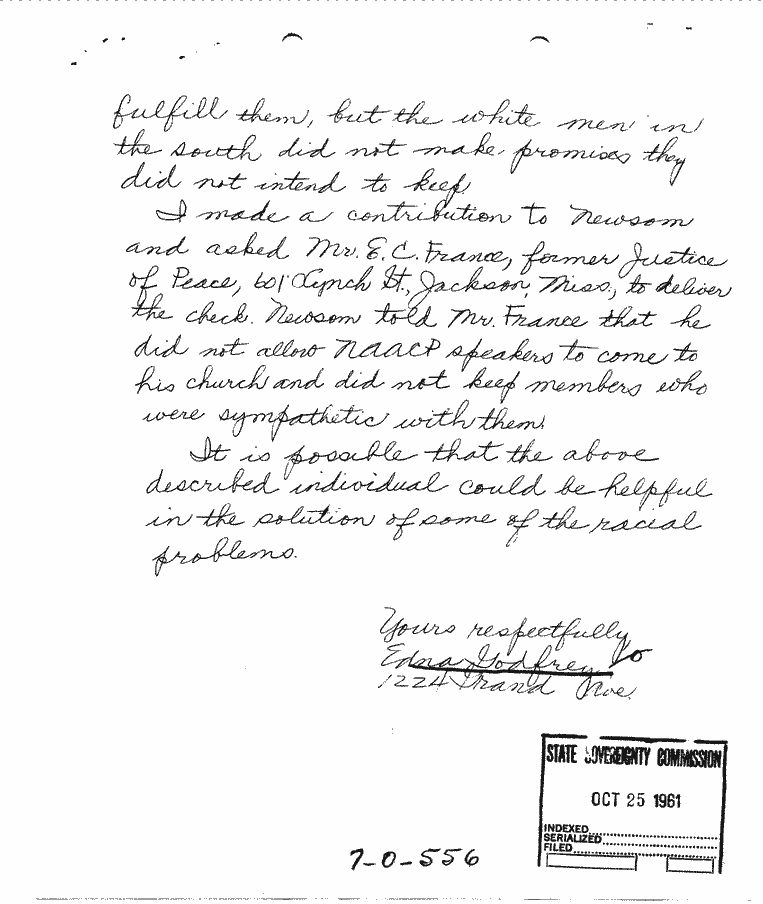 fulfill them, but the white men in
the south did not make promises they
did not intend to keep.
I made a contribution to Newsom
and asked Mr. E. C. France, former Justice
of Peace, 601 Lynch St., Jackson, Miss., to deliver
the check. Newsom told Mr. France that he
did not allow NAACP speakers to come to
his church and did not keep members who
were sympathetic with them.
It is possible that the above
described individual could be helpful
in the solution of some of the racial
problems.
Yours respectfully
Edna Godfrey
1224 Grand Ave.
STATE SOVEREIGNTY COMMISSION
OCT 25 1961
INDEXED
SERIALIZED
FILED
7-0-556